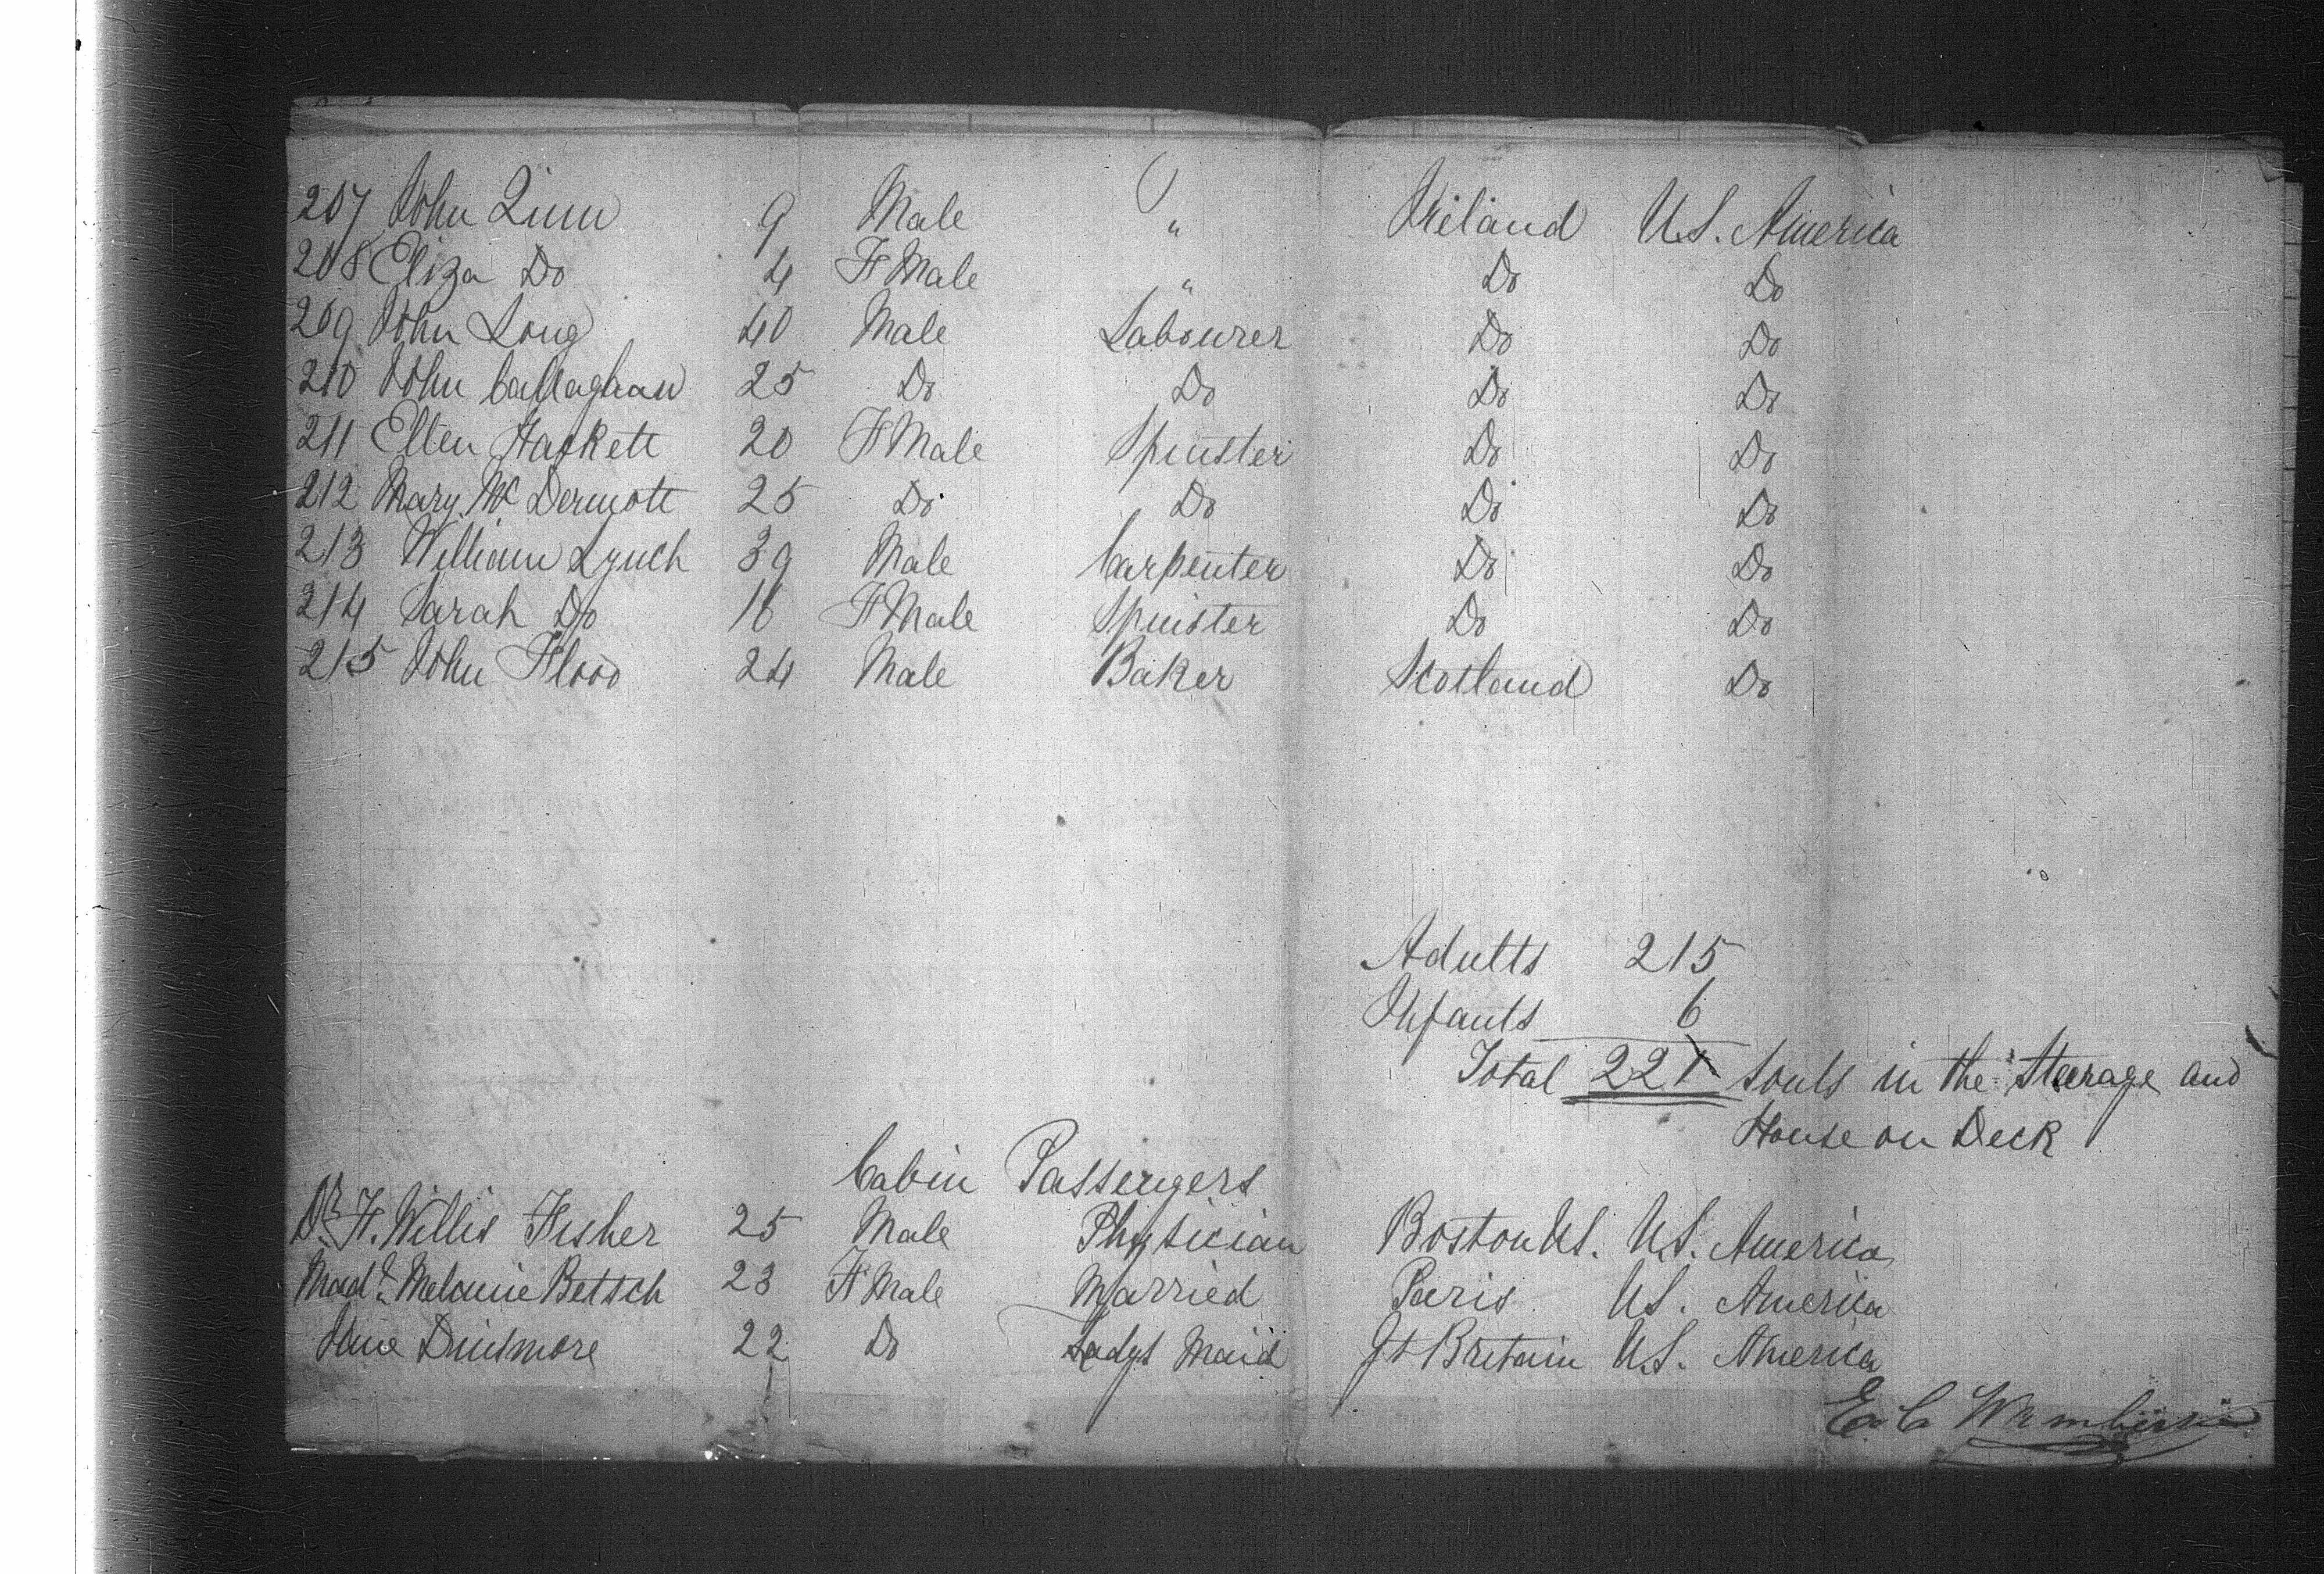 207 John Linn 9 Male " Ireland U.S. America
208 Eliza Do 4 FMale " Do Do
209 John Long 40 Male Labourer Do Do
210 John Callaghan 25 Do Do Do Do
211 Ellen Hackett 20 FMale Spinster Do Do
212 Mary McDermott 25 Do Do Do Do
213 William Lynch 39 Male Carpenter Do Do
214 Sarah Do 16 FMale Spinster Do Do
215 John Flood 24 Male Baker Scotland Do
Adults 215
Infants 6
Total 221 Souls in the Steerage and
House on Deck
Cabin Passengers
Dr. F. Willis Fisher 25 Male Physician Boston US. U.S. America
Madе Melanie Betsch 23 FMale Married Paris US. America
Jane Dinsmore 22 Do Ladys Maid Gt Britain U.S. America